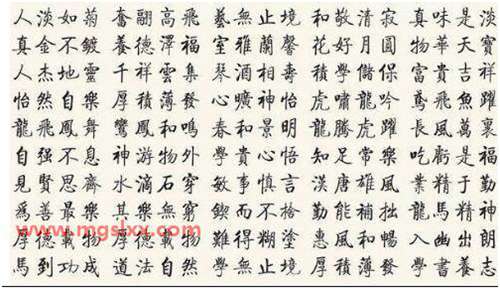 人淡如菊 奮翮高飛 藝無止境 和敬清寂 真味是淡
真金不鍍 養德澤福 室雅蘭馨 花好月圓 物華天寶
人杰地靈 千祥雲集 琴酒相壽 學儲 富貴吉祥
怡然自樂 厚積薄發 心曠神怡 虎嘯龍吟 鳶飛魚躍
龍飛鳳舞 鸞鳳和鳴 春和景明 龍騰虎躍 長風萬裏
自强不息 神游物外 學貴心悟 知足常樂 吃虧是福
見賢思齊 水滴石穿 敏事慎言 漢唐雄風 業精于勤
爲善最樂 其樂無窮 鍥而不捨 勤能補拙 龍馬精神
www.mgslxx.com
厚德載物 厚德載物 難得糊塗 惠風和暢 入幽出朗
馬到功成 道法自然 學無止境 厚積薄發 學書養志